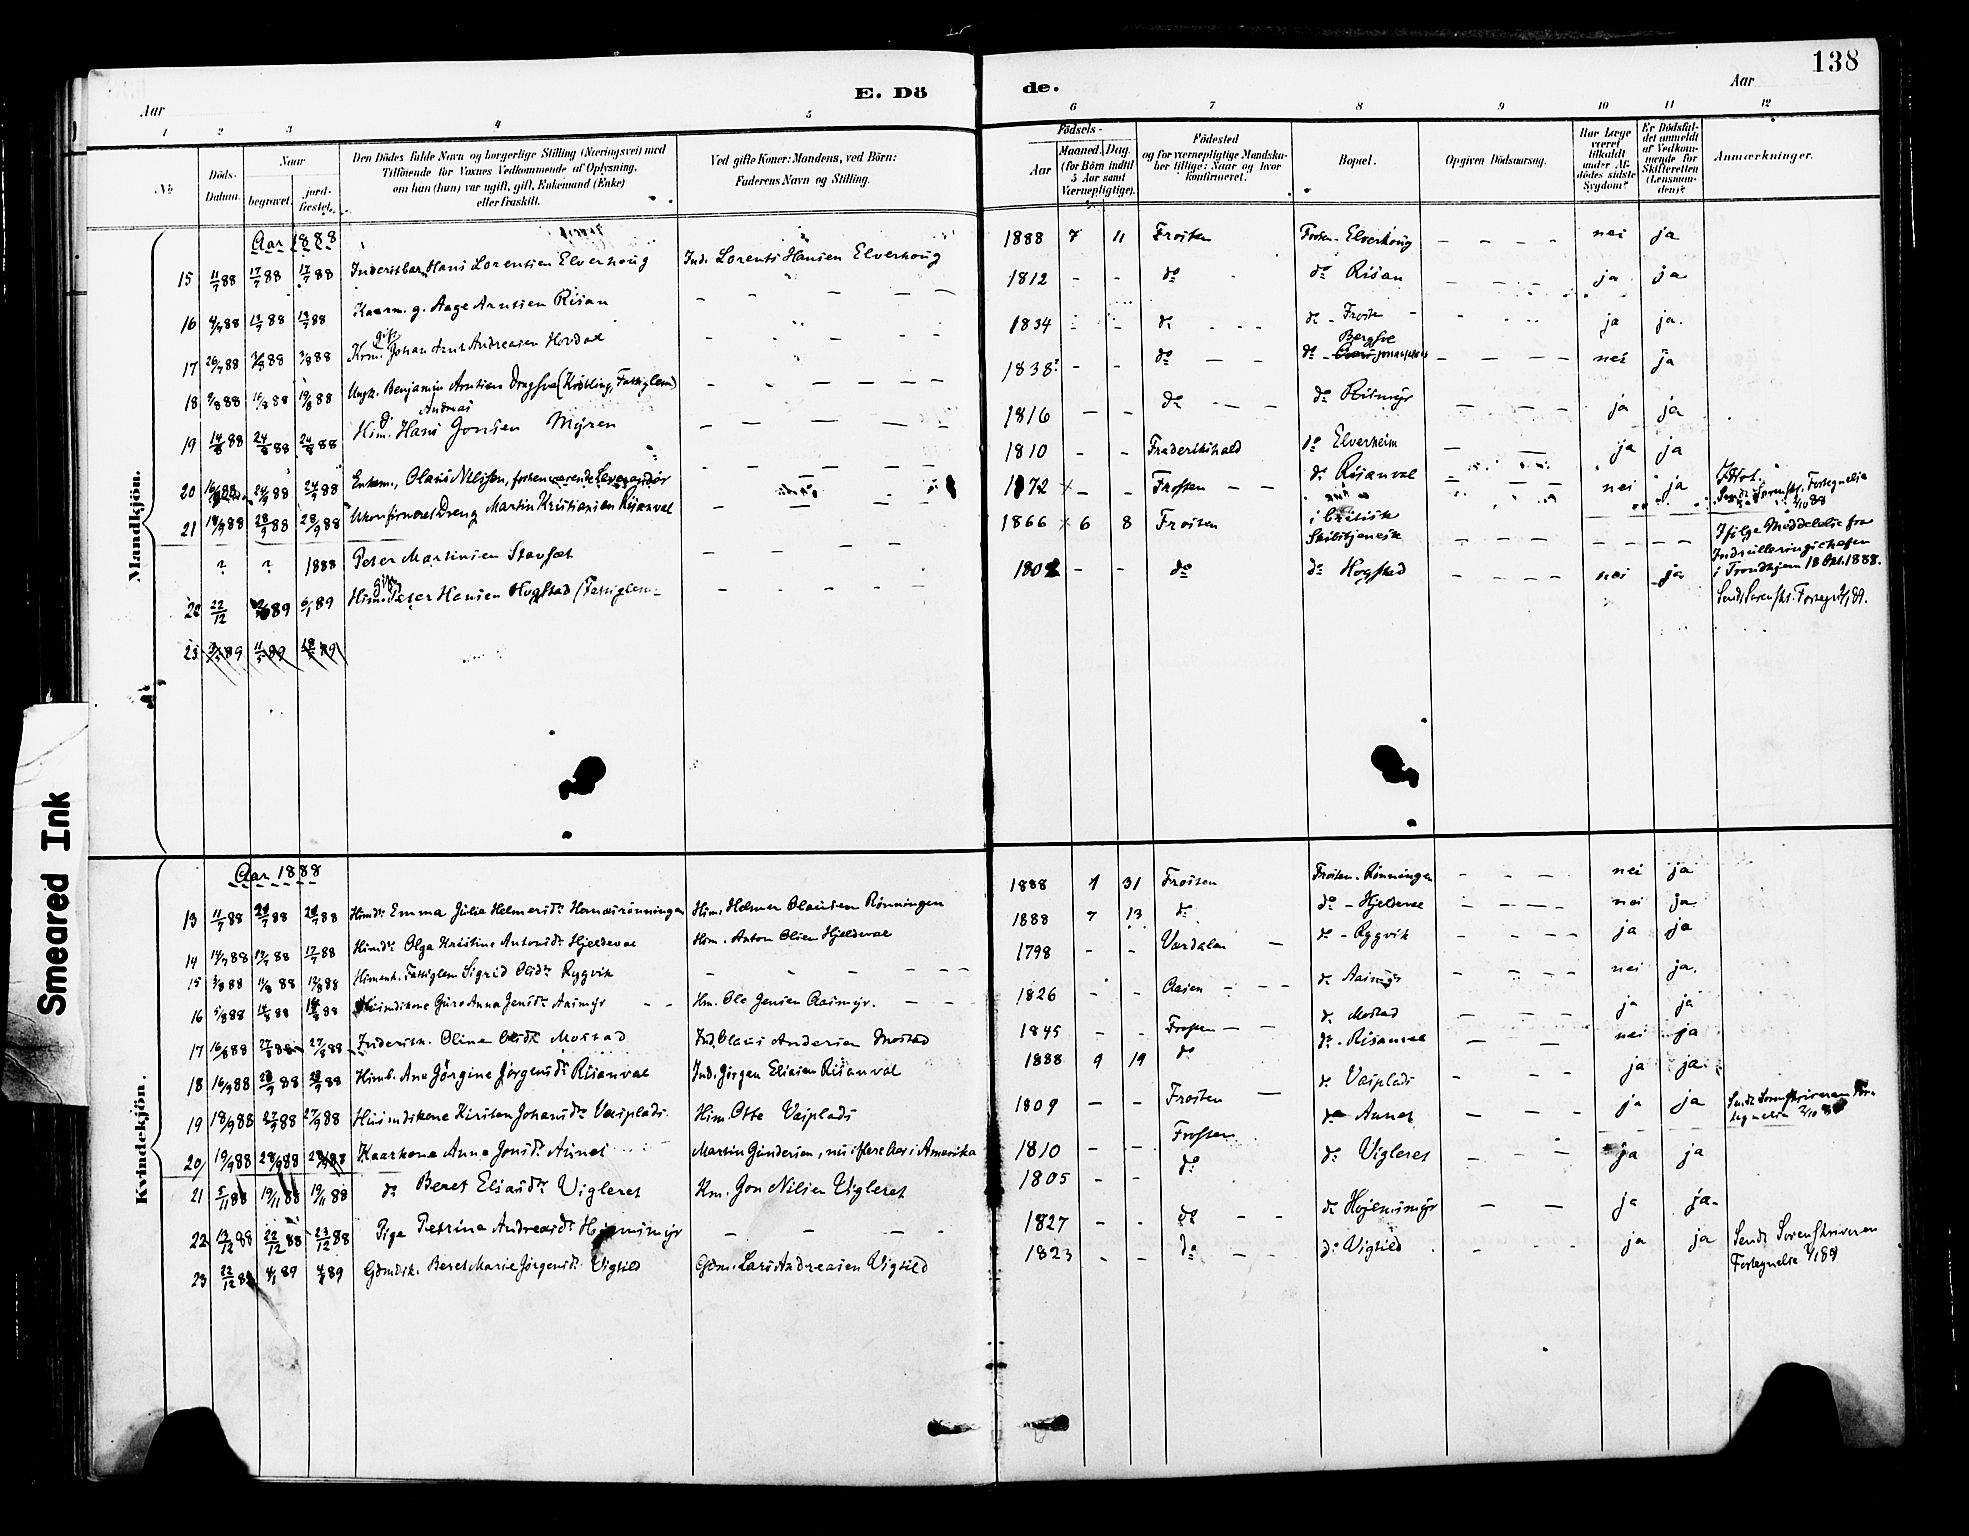 138
E. Döde.
Aar
Aar
1 2 3 4 5 6 7 8 9 10 11 12
№
Döds-Datum.
Naar
begravet.
jordfæstet.
Den Dödes fulde Navn og borgerlige Stilling (Næringsvei) med
Tilföiende for Voxnes Vedkommende af Oplysning,
om han (hun) var ugift, gift, Enkemand (Enke)
eller fraskilt.
Ved gifte Koner: Mandens, ved Börn:
Faderens Navn og Stilling.
Födsels-
Aar
Maaned. Dag.
(for Börn indtil
5 Aar samt
Værnepligtige).
Födested
og for værnepligtige Mandska-
ber tillige: Naar og hvor
konfirmeret.
Bopæl.
Opgiven Dödsaarsag.
Har Læge
været
tilkaldt
under Af-
dödes sidste
Sygdom?
Er Dödsfal-
det anmeldt
af Vedkom-
mende for
Skifteretten
(Lensman-
den)?
Anmærkninger.
Mandkjön.
Aar 1888
15 11/7 88 17/7 88 17/7 88 Inderstbarn Hans Lorentsen Elverhoug Ind. Lorents Hansen Elverhoug 1888 7 11 Frosten Frosten - Elverhoug - - - - nei ja
16 4/7 88 13/7 88 13/7 88 Kaarm. g. Aage Arntsen Risan - - - - - 1812 - - do do Risan - - - - ja ja
17 26/7 88 3/8 88 3/8 88 Kom. gift Johan Arnt Andreasen Hovdal - - - - - 1834 - - do - - - do - Frosten - ja ja.
18 9/8 88 16/8 88 19/8 88 Ungk. Benjamin Arntsen Dragsve (Krøbling, Fattiglem) - - - - - 1838? - - do - - do - Bergsve - - - - nei ja
19 14/8 88 24/8 88 24/8 88 Husm. Hans Andreas Jonsen Myren - - - - - 1816 - - do - - - do Rismyr - - - - ja ja
20 16/9 88 24/9 88 24/9 88 Enkem., Olaus Nielsen, forhenværende Leverandør - - - - - 1810 - - Frederikshald do Elverheim - - ja ja
21 18/9 88 28/9 88 28/9 88 Ukonfirmeret Dreng Martin Kristiansen Risanval - - - - 1872 - - Frosten - - do Risanval - - - - nei ja
Sendt Sorenskr. Fortegnelse
1/10 88
? ? 1888 Peter Martinsen Stavset - - - - 1866 6 8 Frosten i britisk
Skibstjeneste - - - - - - -
Ifølge Meddelelse fra
Indrulleringschefen
i Trondhjem 18 Okt. 1888.
22 22/12 89 6/1 89 Husm. gift Peter Hansen Hogstad (Fattiglem - - - - - - 180 - - do do Hogstad - - - - nei ja
Sendt Sorenskr. Fortegn. 7/1 89.
23 89 11/ 89 89
Kvindekjön.
Aar 1888
13 11/7 88 20/7 88 20/7 88 Husmdr. Emma Julia Helmersdr. Hernesrønningen Husm. Helmer Olausen Rønningen 1888 31 Frosten Frosten - Rønningen - - - nei ja
14 14/7 88 17/7 88 17/7 88 Husmdr. Olga Kristine Antonsdr. Hjeldeval Husm. Anton Olsen Hjeldeval 1888 7 13 do do - Hjeldeval - - - - nei ja
15 3/8 88 11/8 88 12/8 88 Husmenk. Fattiglem Sigrid Olsdr. Rygvik - - - - - - 1798 - - Værdalen - do - Rygvik - - - - ja ja
16 5/8 88 14/8 88 14/8 88 Husmdskone Guro Anna Jensdr. Aasmyr - - Hm. Ole Jensen Aasmyr. - - - 1826 - - Aasen - - - do Aasmyr - - - - nei ja.
17 16/8 88 27/8 88 27/8 88 Inderstk. Oline Olsdr. Mostad Ind. Olaus Andersen Mostad 1845 - - Frosten - - do Mostad ja ja
18 16/9 88 28/9 88 28/9 88 Husmb. Ane Jørgine Jørgensdr. Risanval Ind. Jørgen Eliasen Risanval 1888 9 19 do do - Risanval - - nei ja
19 18/9 88 27/9 88 27/9 88 Husmdskone Kirsten Johansdr. Vasplads Husm. Otte Vasplads 1809 - - Frosten - do Vasplads - - ja ja.
20 19/9 88 28/9 88 28/9 88 Kaarkone Anna Jonsdr. Aunet Martin Gundersen, nu i flere Aar i Amerika 1810 - - Frosten do Aunet - - - - ja ja
Sendt Sorenskriveren For-
tegnelse 2/10 88
21 5/11 88 19/11 88 19/11 88 do Beret Eliasdr. Vigleret Km. Jon Nilsen Vigleret 1805 - - do do Vigleret - - - ja ja
22 13/12 88 22/12 88 23/12 88 Pige Petrina Andreasdr. Højemsmyr - - - - 1827 - - do - - do Højemsmyr - - - ja ja.
23 22/12 88 4/1 89 4/1 89 Gdmdsk. Beret Marie Jørgensdr. Vigtild Gdm. Lars Andreasen Vigtild 1823 - - do - - do Vigtild - - - - ja ja
Sendt Sorenskriveren
Fortegnelse 7/1 89
Smeared Ink